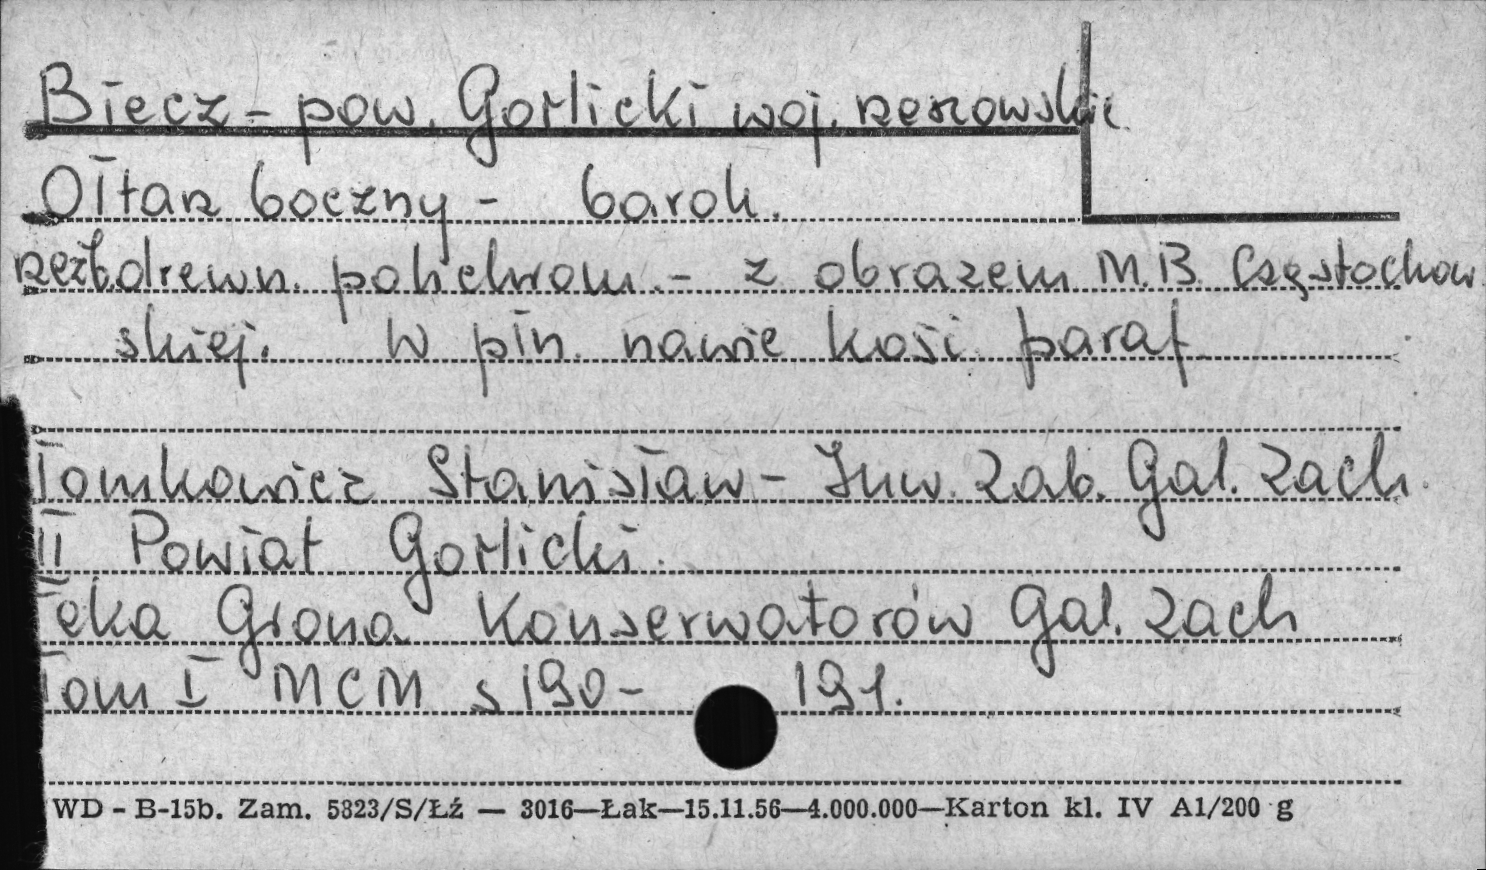 Biecz - pow. Gorlicki woj. rzeszowskie
Ołtarz boczny - barok.
rzeźb. drewn. polichrom. - z obrazem M.B. Częstochow
skiej. W płn. nawie kość. paraf.
Tomkowicz Stanisław - Inw. Zab. Gal. Zach.
II Powiat Gorlicki.
Teka Grona Konserwatorów Gal. Zach
Tom I MCM s 190- 191.
WD - B-15b. Zam. 5823/S/Łź — 3016—Łak—15.11.56—4.000.000—Karton kl. IV A1/200 g